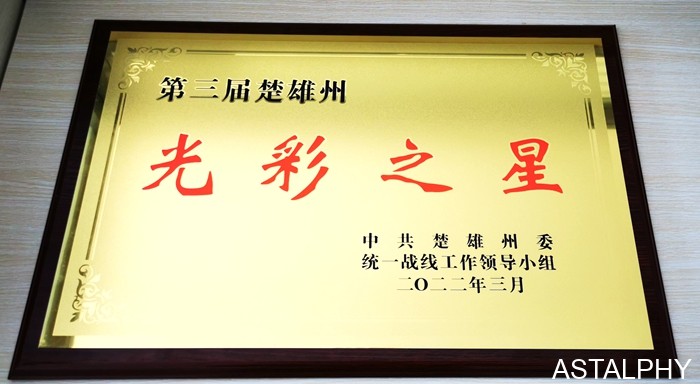 第三届楚雄州
光彩之星
中共楚雄州委
统一战线工作领导小组
二〇二二年三月
ASTALPHY